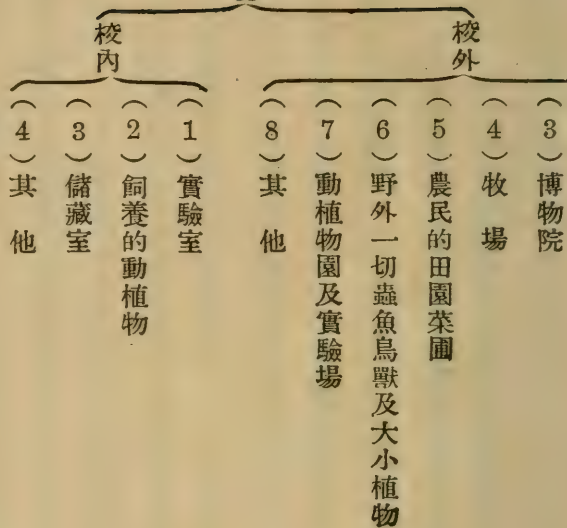 校外
（3）博物院
（4）牧場
（5）農民的田園菜圃
（6）野外一切蟲魚鳥獸及大小植物
（7）動植物園及實驗場
（8）其他
校內
（1）實驗室
（2）飼養的動植物
（3）儲藏室
（4）其他